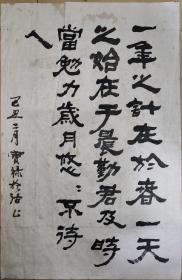 一年之计在於春一天
之始在于晨勤君及时
當勉力歳月悠〻不待
人
己丑二月寶林於洛上